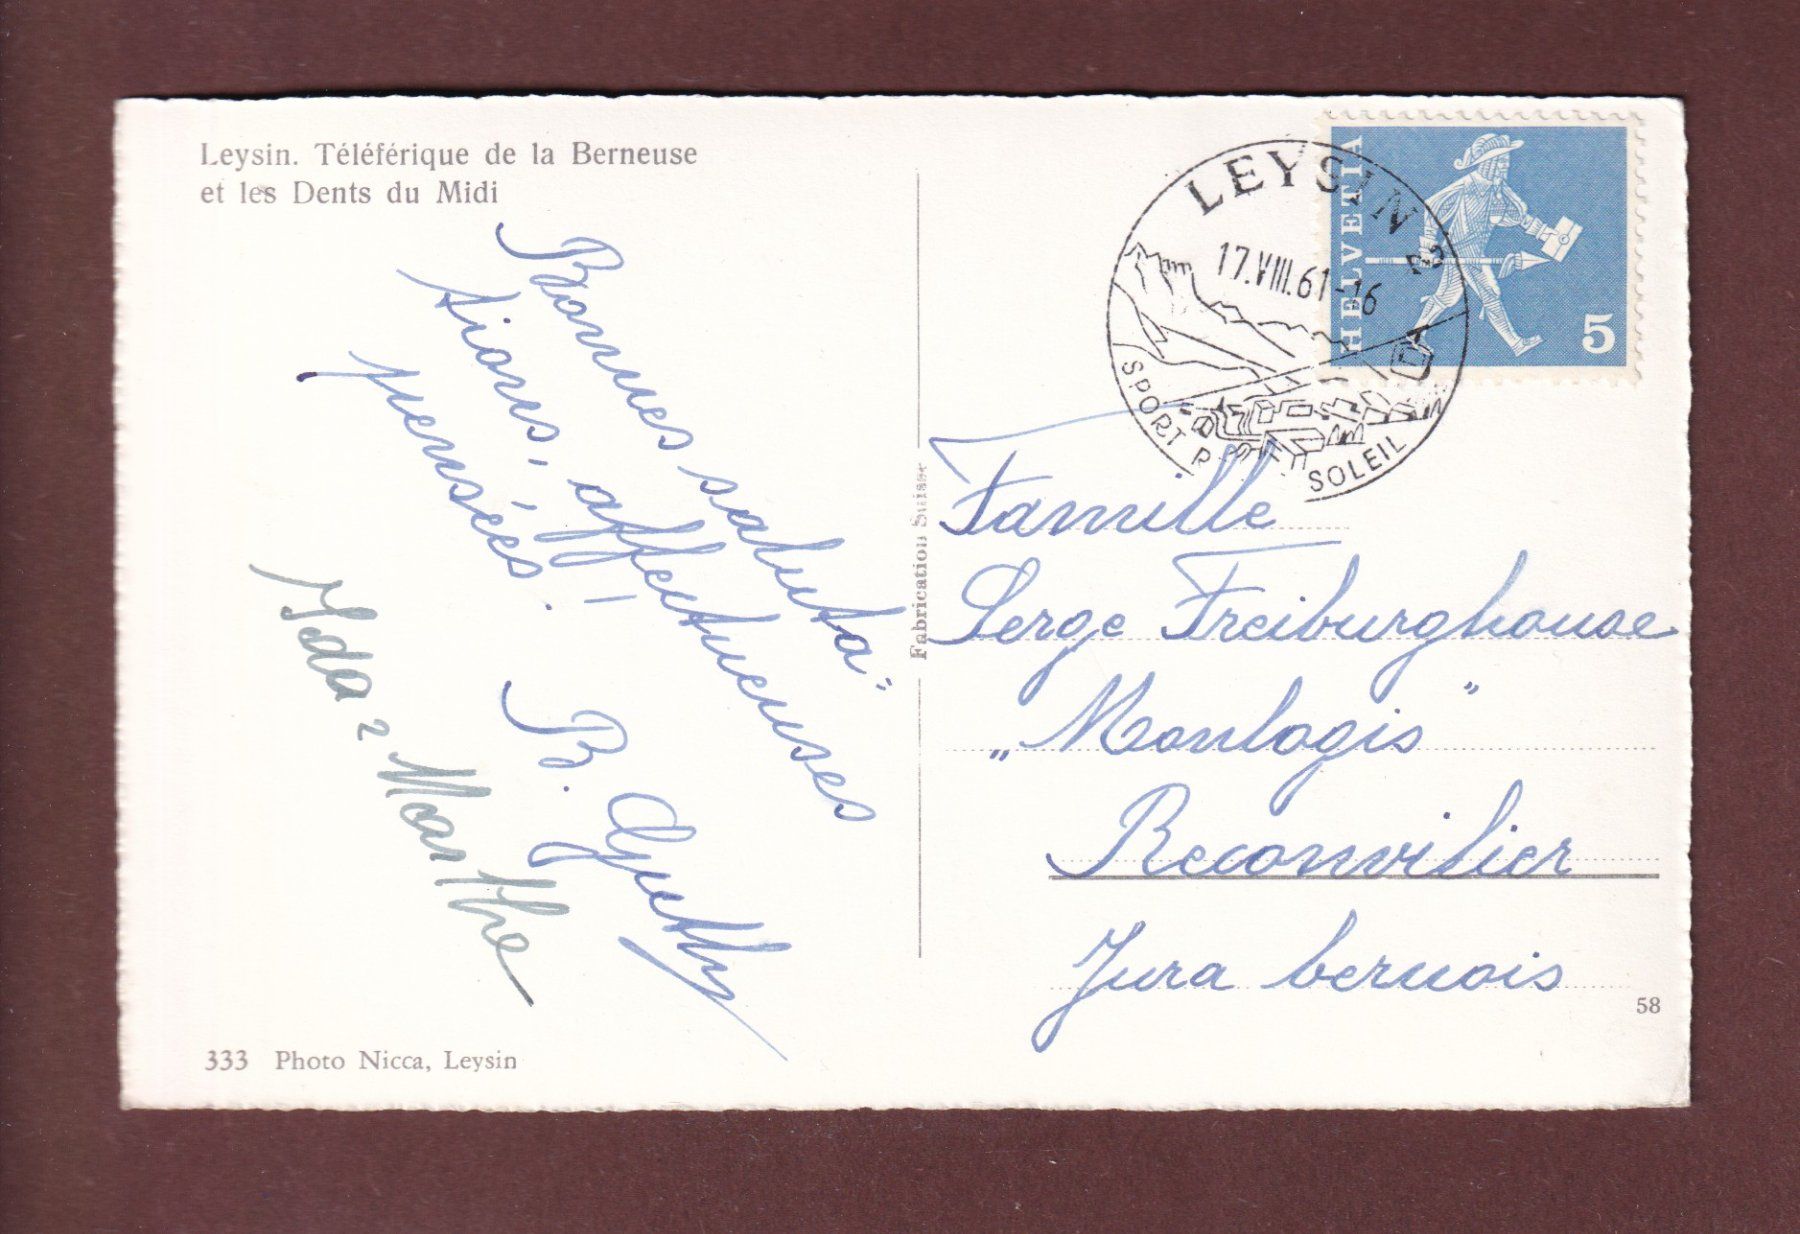 Leysin. Téléférique de la Berneuse
et les Dents du Midi
Bonnes saluta=
tions, affectueuses
pensées!
B. Gyutty
Ida & Marthe
333 Photo Nicca, Leysin
Fabrication Suisse
LEYSIN 2
17.VIII.61-16
SPORT R SOLEIL
HELVETIA
5
Famille
Serge Freiburghause
„Monlogis"
Reconvilier
Jura bernois
58